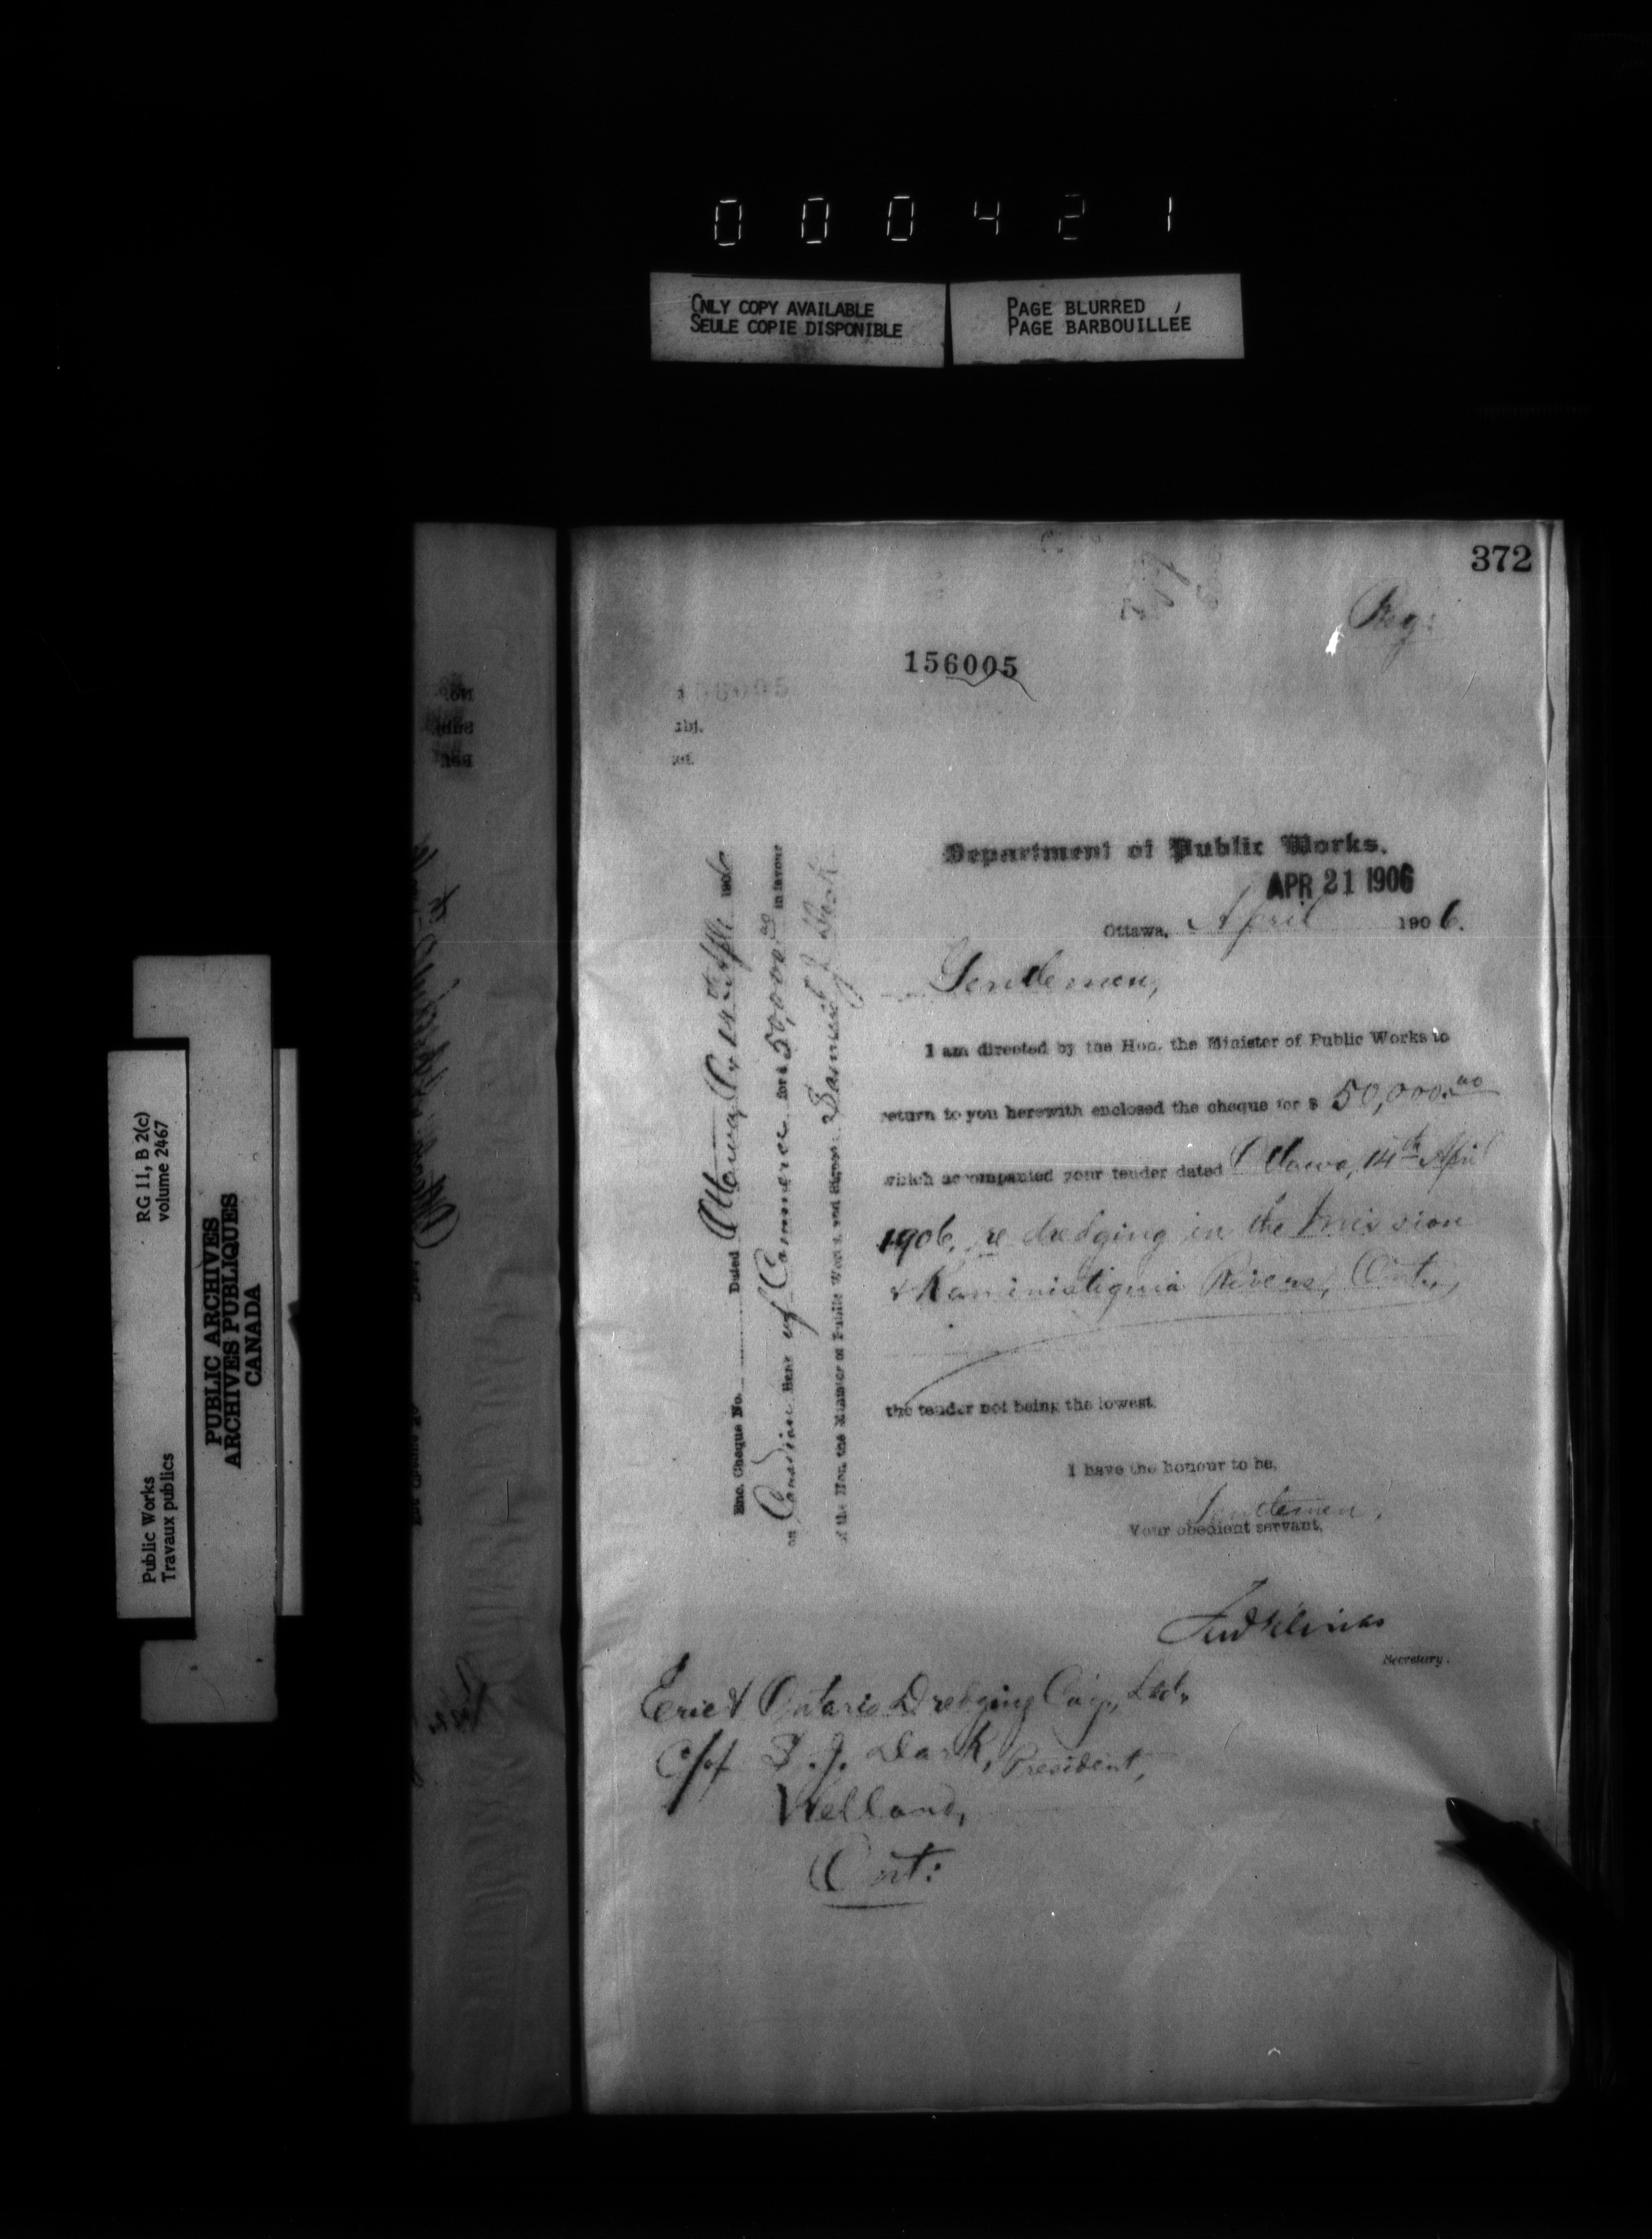 000421
ONLY COPY AVAILABLE
SEULE COPIE DISPONIBLE
PAGE BLURRED
PAGE BARBOUILLÉE
372
Reg:
156005
Department of Public Works.
APR 21 1906
Ottawa, April 1906.
Gentlemen,
I am directed by the Hon. the Minister of Public Works to
return to you herewith enclosed the cheque for $ 50,000.00
which accompanied your tender dated Ottawa, 14th April
1906, re dredging in the Mission
& Kaministiquia Rivers, Ont.,
the tender not being the lowest.
I have the honour to be,
Gentlemen,
Your obedient servant,
Secretary.
Enc. Cheque No. Dated Ottawa, 14th Apl. 1906
on Canadian Bank of Commerce for $ 50,000.00 in favour
of the Hon. the Minister of Public Works and Signed
Erie & Ontario Dredging Coy., Ltd.,
c/of D. J. Dark, President,
Welland,
Ont:
RG 11, B 2(c)
volume 2467
Public Works
Travaux publics
PUBLIC ARCHIVES
ARCHIVES PUBLIQUES
CANADA